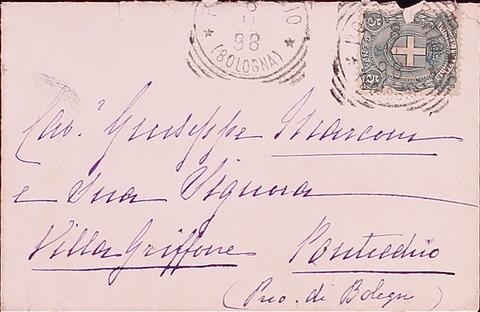 98
(BOLOGNA)
Cav.r Giuseppe Marconi
e Sua Signora
Villa Griffone Pontecchio
(Prov. di Bologna)